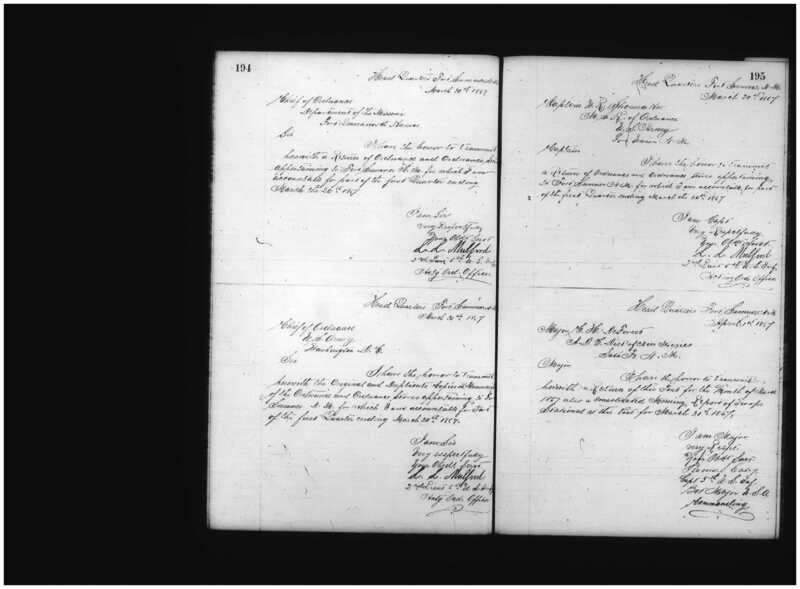 194
Head Quarters Fort Sumner N.M.
March 30th 1867
Chief of Ordnance
Department of the Missouri
Fort Leavenworth Kansas
Sir
I have the honor to transmit
herewith a Return of Ordnance and Ordnance
appertaining to Fort Sumner N.M. for which I am
accountable for part of the first Quarter ending
March the 20th 1867
I am Sir
Very Respectfully
Your Obdt Servt
L. L. Mulford
2nd Lieut 5th U.S. Infy
Actg Ord. Officer
Head Quarters Fort Sumner
March 30th 1867
Chief of Ordnance
U.S. Army
Washington D.C.
Sir
I have the honor to transmit
herewith the Original and Duplicate
of the Ordnance and Ordnance stores appertaining to Fort
Sumner N.M. for which I am accountable for Part
of the first Quarter ending March 30th 1867.
I am Sir
Very respectfully
Your Obdt Servt
L. L. Mulford
2nd Lieut 5th U.S. Infy
Actg Ord. Officer
195
Head Quarters Fort Sumner N.M.
March 30th 1867
Captain W. R. Shoemaker
M. S. K. of Ordnance
U.S. Army
Fort Union N.M.
Captain
I have the honor to transmit
a Return of Ordnance and Ordnance Stores appertaining
to Fort Sumner N.M. for which I am accountable for part
of the first Quarter ending March the 20th 1867
I am Capt
Very Respectfully
Your Obdt Servt
L. L. Mulford
2nd Lieut 5th U.S. Infy
Acting Ord. Officer
Head Quarters Fort Sumner N.M.
April 1st 1867
Major C. H. DeForest
A.A.A. Dist of New Mexico
Santa Fe N.M.
Major
I have the honor to transmit
herewith a Return of this Post for the Month of March
1867 also a consolidated Morning Report of troops
stationed at this Post for March 31st 1867.
I am Major
Very Respt
Your Obdt Servt
Capt 5th U.S. Infy
Bvt Major U.S.A
Commanding